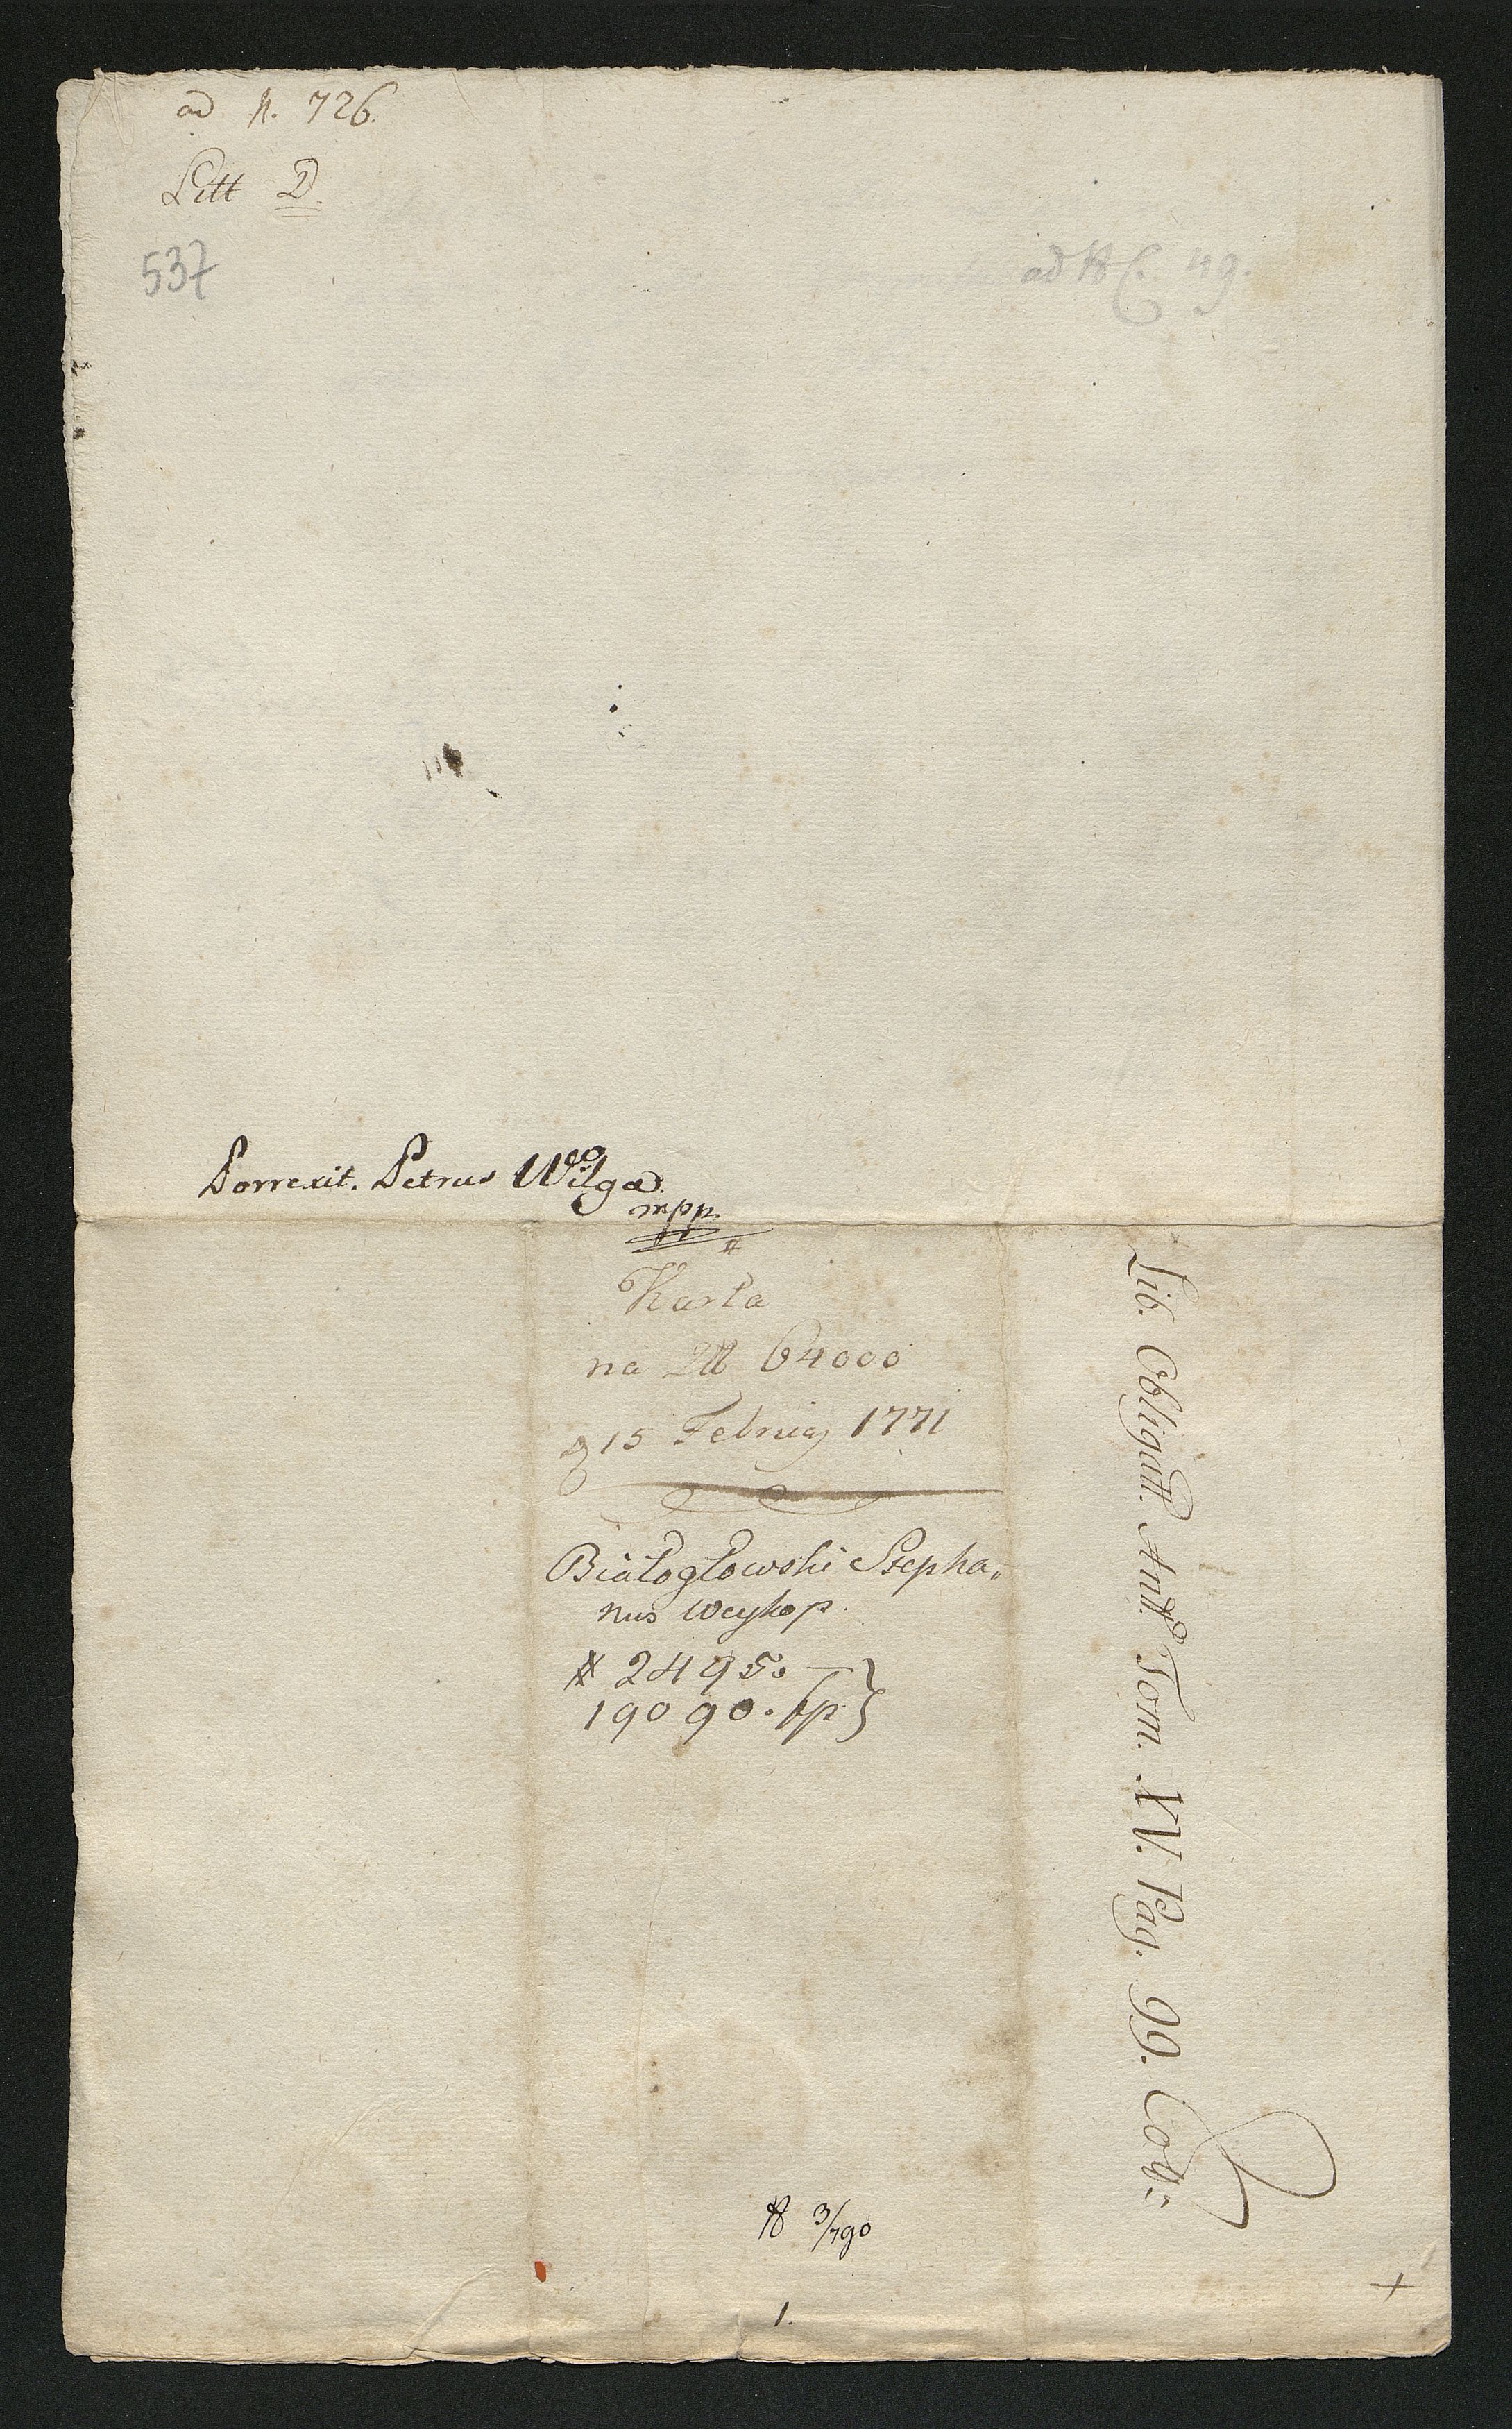 ad N. 726.
Litt D.
537
ad N C. 49.
Porrexit. Petrus Wilga
mpp
Karta
na 64000
15 February 1771
Białogłowski Stepha„
nus Weykop.
# 2495. —
19090. fp }
Lib. Obligatt. Antt. Tom. XV. Pag. 99. Coll:
N 3/790
1.
+